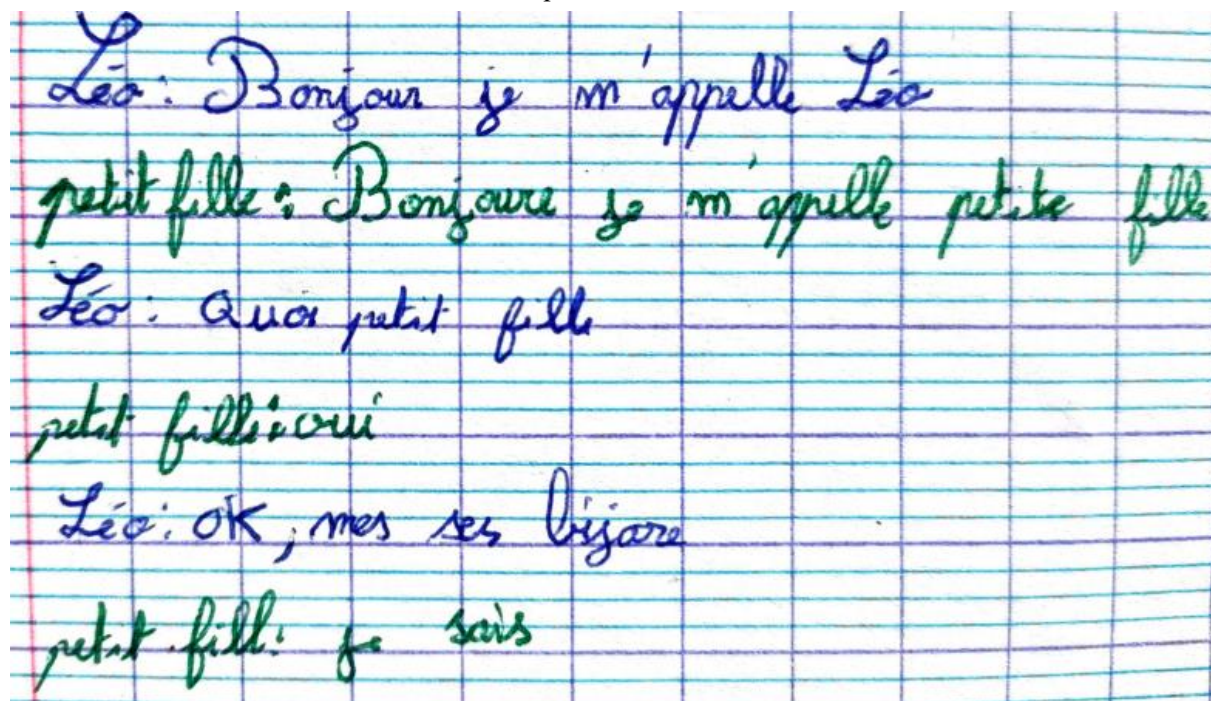 Léo : Bonjour je m'appelle Léo
petit fille : Bonjoure je m'appelle petite fille
Léo : Quoi petit fille
petit fille : oui
Léo : OK, mes ses bizare
petit fille : je sais